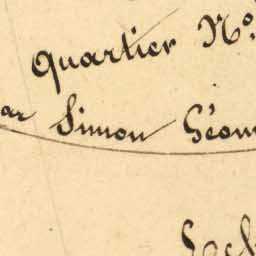 Quartier No.
ar Simon Géom